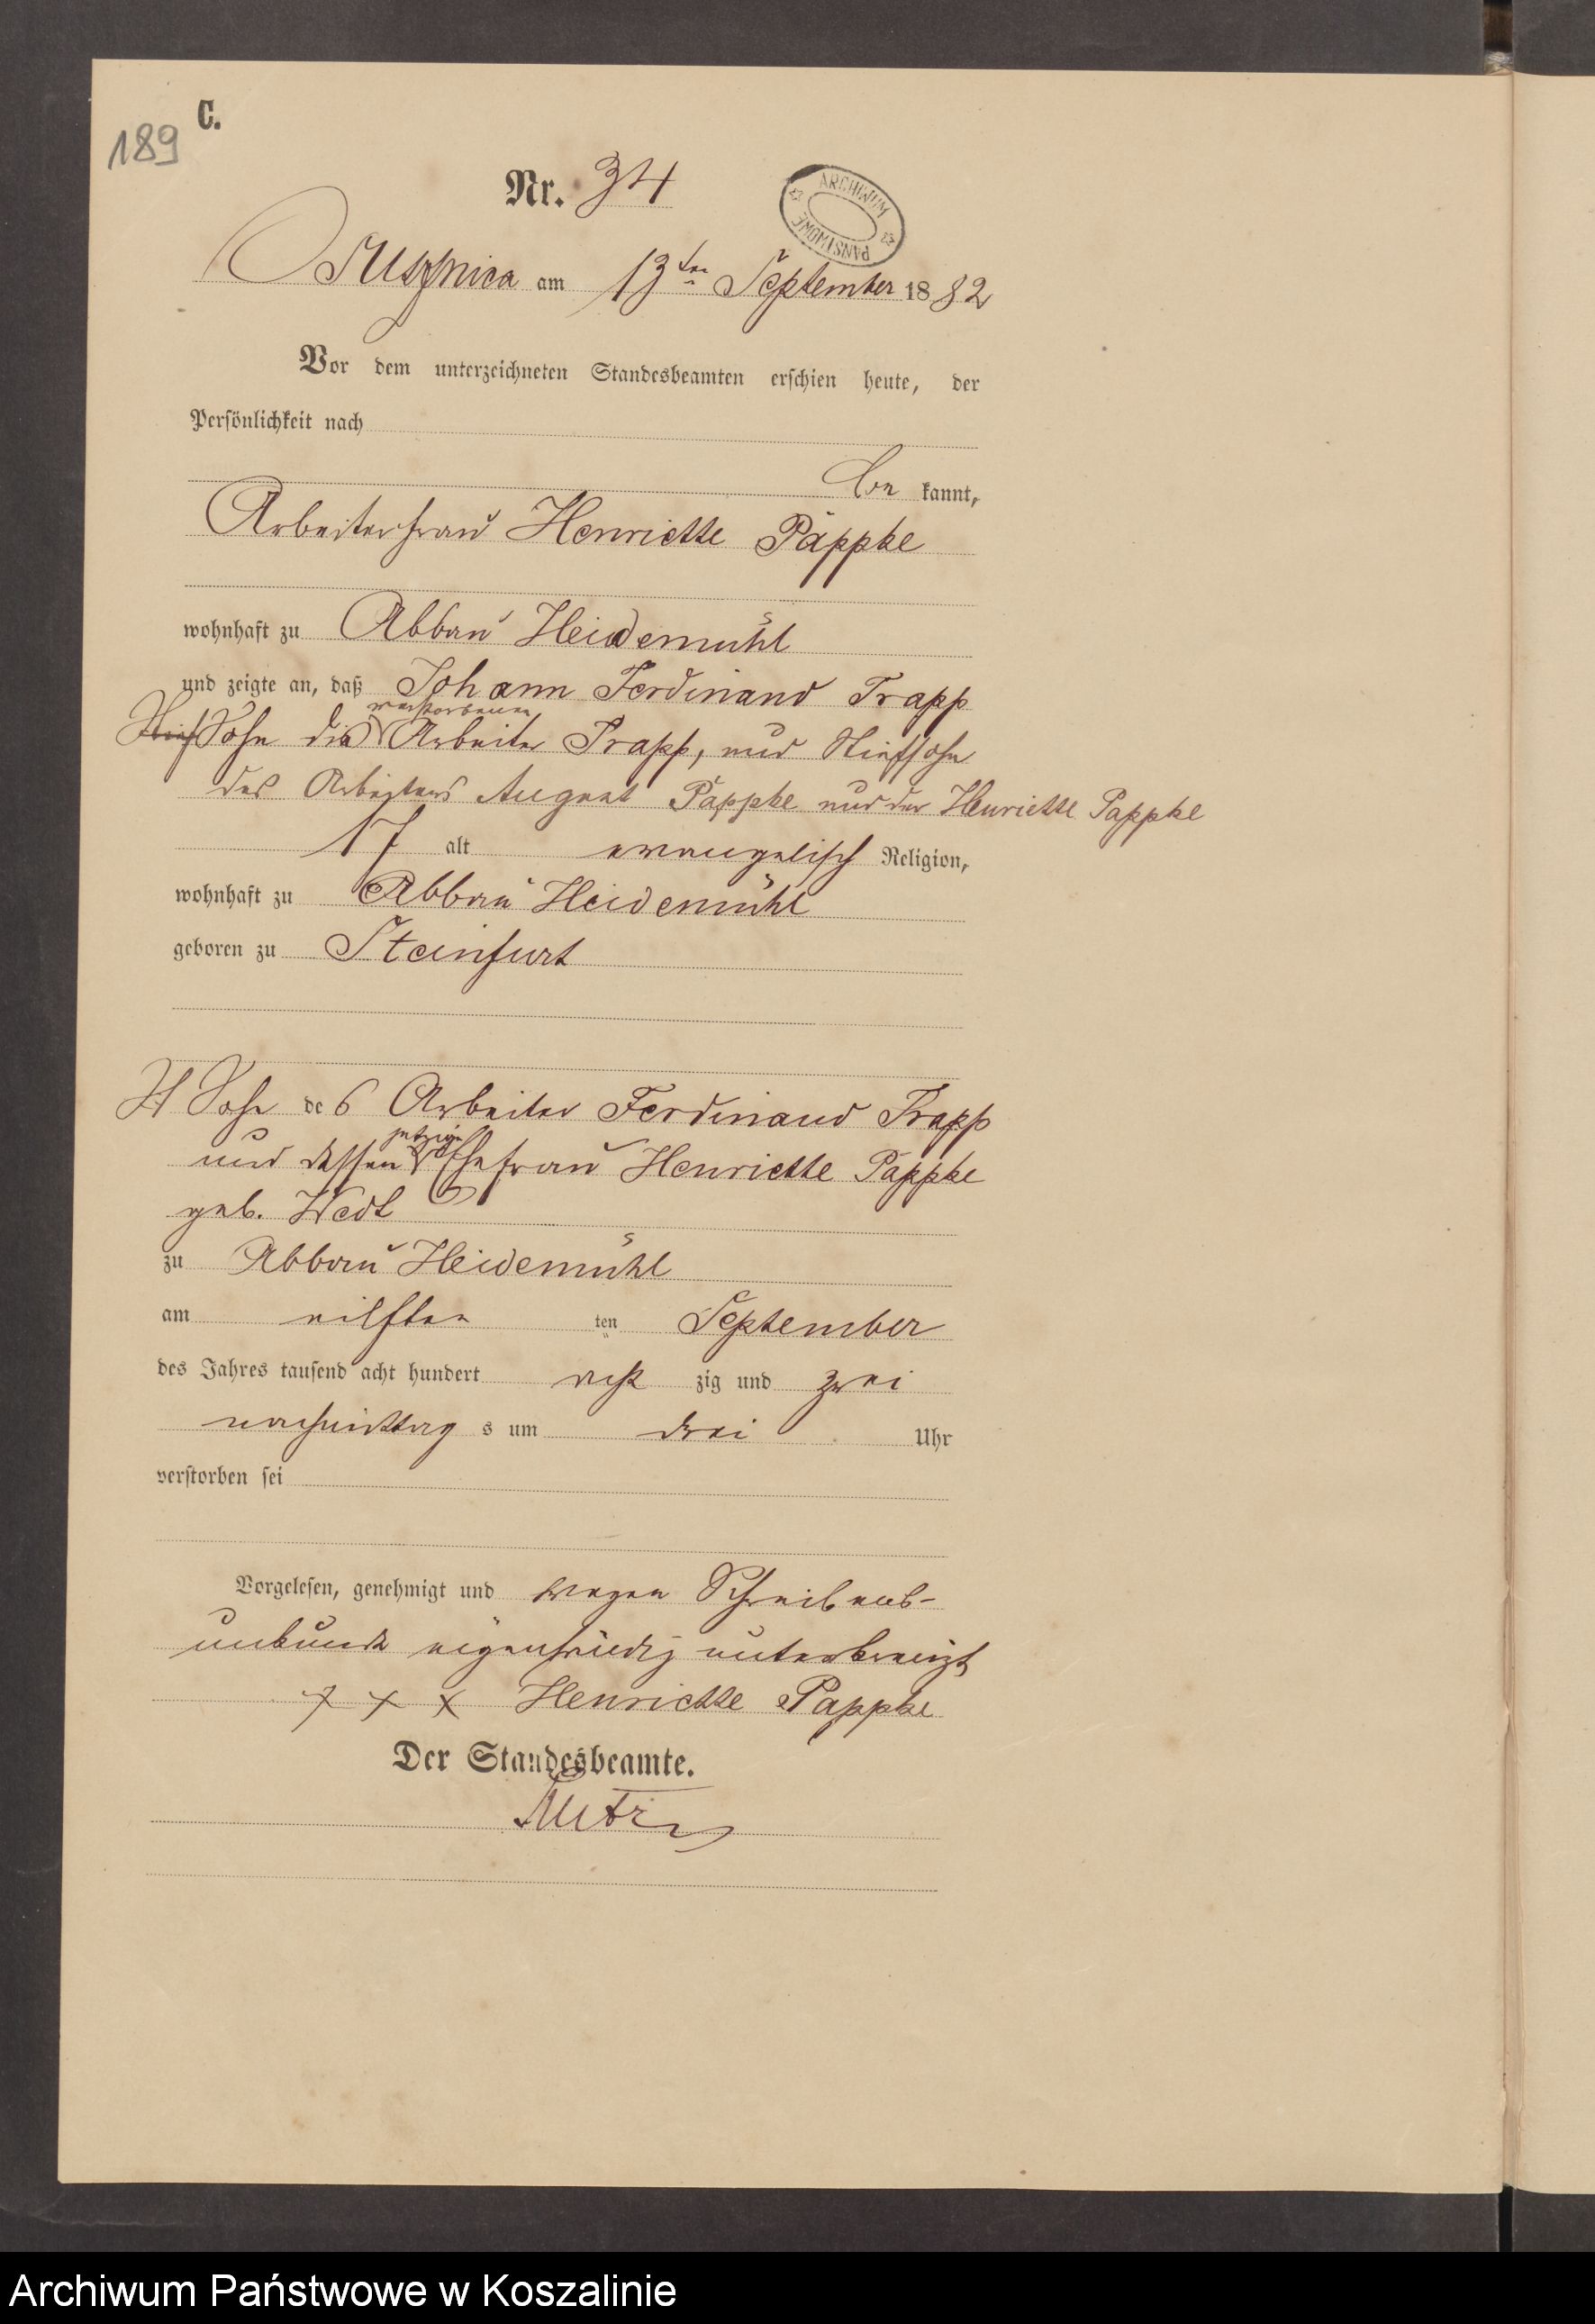 C.
189
Nr. 34
ARCHIWUM PAŃSTWOWE
am 13ten September 1882
Vor dem unterzeichneten Standesbeamten erschien heute, der
Persönlichkeit nach
be kannt,
Arbeiterfrau Henriette Päppke
wohnhaft zu Abbau Heidemühl
und zeigte an, daß Johann Ferdinand Trapp
verstorbenen
Stief Sohn des Arbeiter Trapp, und Stiefsohn
des Arbeiters August Päppke und der Henriette Pappke
17 alt evangelisch Religion,
wohnhaft zu Abbau Heidemühl
geboren zu Steinfurt
Sohn des Arbeiter Ferdinand Trapp
jetzige
und dessen Ehefrau Henriette Päppke
geb. Wedt
zu Abbau Heidemühl
am eilften ten September
des Jahres tausend acht hundert acht zig und zwei
nachmittag s um drei Uhr
verstorben sei
Vorgelesen, genehmigt und wegen Schreibens-
unkunde eigenhändig unterkreuzt
x x x Henriette Pappke
Der Standesbeamte.
Archiwum Państwowe w Koszalinie